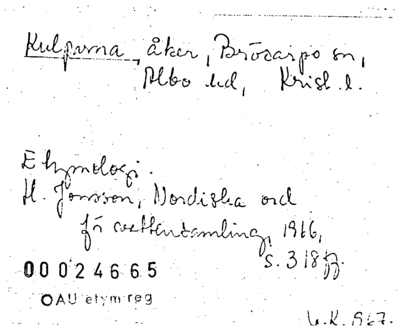 Kulpurna, åker, Brösarps sn,
Albo hd, Krist. l.
Etymologi.
H. Jonsson, Nordiska ord
för vattensamling, 1966,
s. 318 ff.
00024665
OAU etym reg